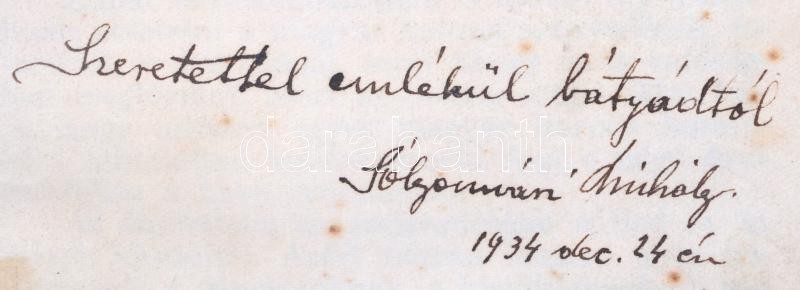 Szeretettel emlékül bátyádtól
Sólyomvári Mihály.
1934 dec. 24 én
darabanth